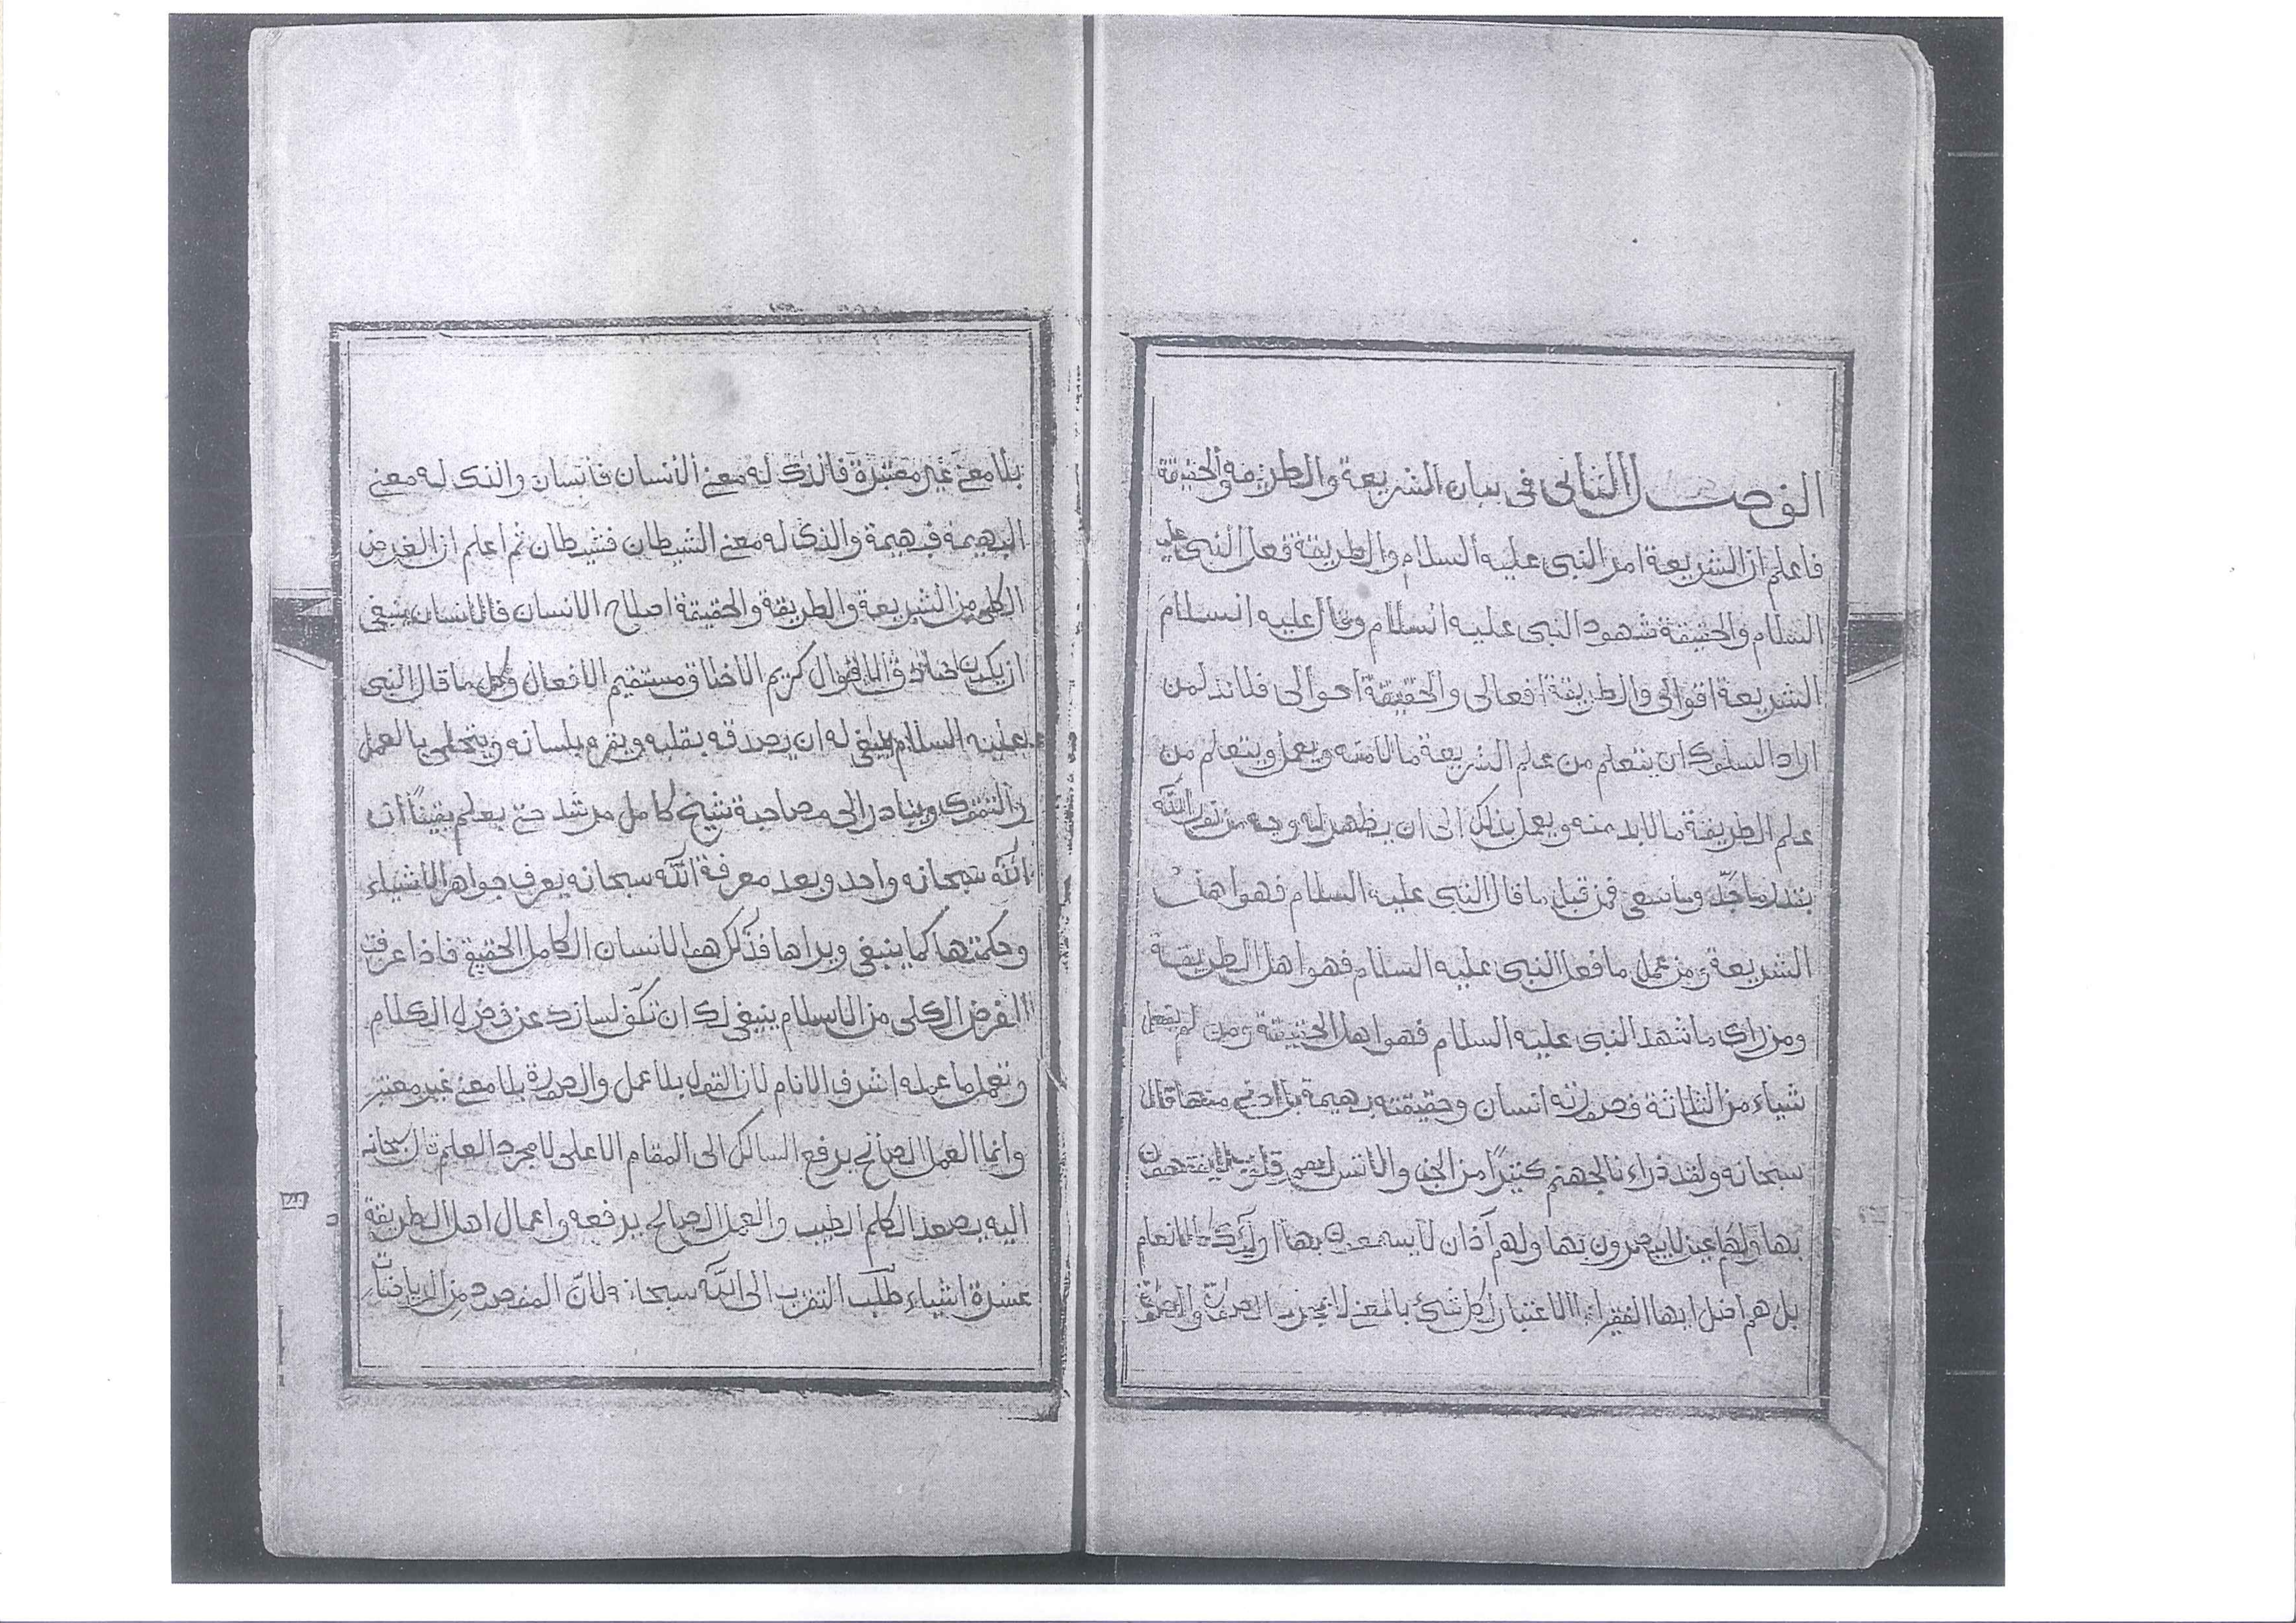 الفصل الثانى فى بيان الشريعة والطريقة والحقيقة
فاعلم ان الشريعة امر النبى عليه السلام والطريقة فعل النبى عليه
السلام والحقيقة شهود النبى عليه السلام وقال عليه السلام
الشريعة اقوالى والطريقة افعالى والحقيقة احوالى فلا بد لمن
اراد السلوك ان يتعلم من علم الشريعة ما لا منه ويعمل ويتعلم من
علم الطريقة ما لا بد منه ويعمل بذلك الى ان يظهر له وجه من نور الله
بقدر ما جد وما سعى فمن قبل ما قال النبى عليه السلام فهو اهل
الشريعة ومن عمل ما فعل النبى عليه السلام فهو اهل الطريقة
ومن راى ما شهد النبى عليه السلام فهو اهل الحقيقة ومن لم يفعل
شياء من الثلاثة فصورته انسان وحقيقته بهيمة بل ادنى منها قال
سبحانه ولقد ذراءنا لجهنم كثيرًا من الجن والانس لهم قلوب لا يفقهون
بها ولهم اعين لا يبصرون بها ولهم آذان لا يسمعون بها اولئك كالانعام
بل هم اضل ايها الفقير ان الاعتبار لكل شئ بالمعنى لا بمجرد الصورة والصورة
بلا معنى غير معتبرة فالذى له معنى الانسان فانسان والذى له معنى
البهيمة فبهيمة والذى له معنى الشيطان فشيطان ثم اعلم ان الغرض
الكلى من الشريعة والطريقة والحقيقة اصلاح الانسان فالانسان ينبغى
ان يكون صادق الاقوال كريم الاخلاق مستقيم الافعال وكل ما قال النبى
عليه السلام ينبغى له ان يصدقه بقلبه ويقر بلسانه ويتحلى بالعمل
والتقوى ويبادر الى مصاحبة شيخ كامل مرشد حتى يعلم يقينًا ان
الله سبحانه واحد وبعد معرفة الله سبحانه يعرف جواهر الاشياء
وحكمتها كما ينبغى ويراها فذلك هو الانسان الكامل الحقيقى فاذا عرفت
الغرض الكلى من الاسلام ينبغى لك ان تكف لسانك عن فضول الكلام
وتعمل ما عمله اشرف الانام لان القول بلا عمل والصورة بلا معنى غير معتبر
وانما العمل الصالح يرفع السالك الى المقام الاعلى لا مجرد العلم قال سبحانه
اليه يصعد الكلم الطيب والعمل الصالح يرفعه واعمال اهل الطريقة
عشرة اشياء طلب التقرب الى الله سبحانه ولانّ المقصود من الرياضات